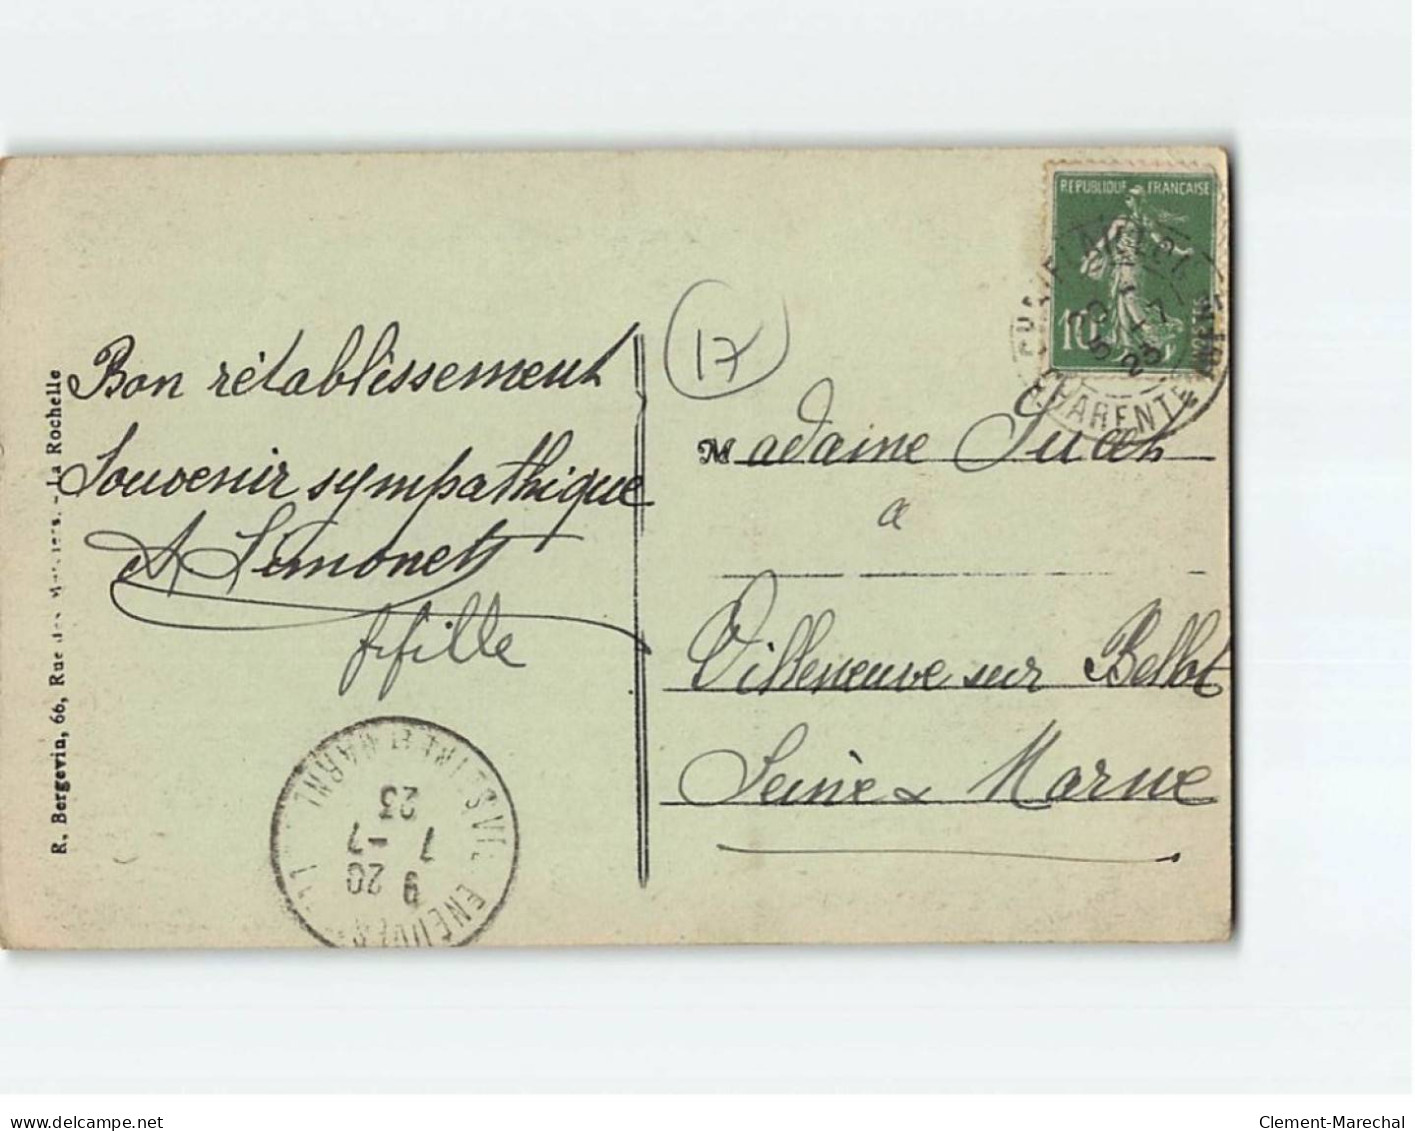 RÉPUBLIQUE FRANÇAISE
10
CHARENTE INFRE
5 -7
23
17
Bon rétablissement
Souvenir sympathique
A Simonet
fifille
Madame
a
Villeneuve sur Bellot
Seine & Marne
R. Bergevin, 66, Rue des - La Rochelle
SEINE ET MARNE
9 20
7 -7
23
www.delcampe.net
Clement-Marechal